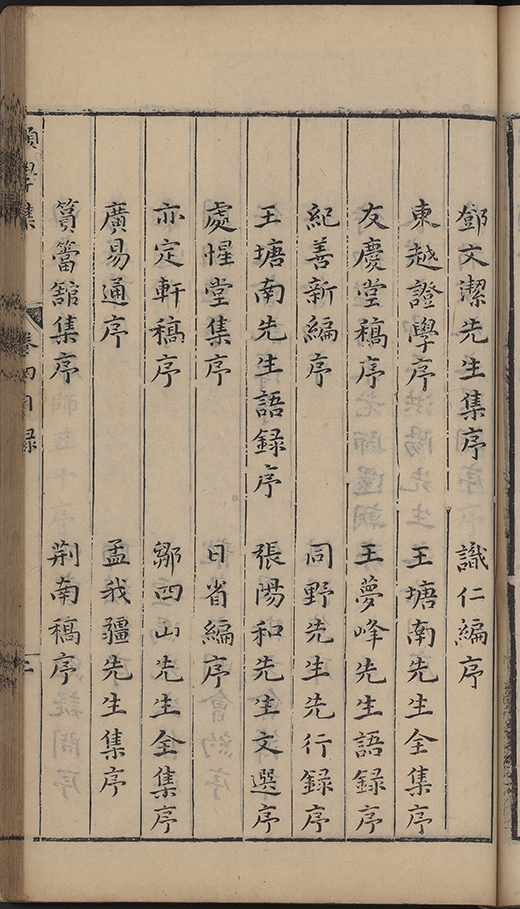 鄧文潔先生集序 識仁編序
東越證學序 王塘南先生全集序
友慶堂稿序 王夢峰先生語録序
紀善新編序 同野先生先行録序
王塘南先生語録序 張陽和先生文選序
處惺堂集序 日省編序
亦定軒稿序 鄒四山先生全集序
廣易通序 孟我疆先生集序
篔簹舘集序 荆南稿序
願學集 卷四目録 二